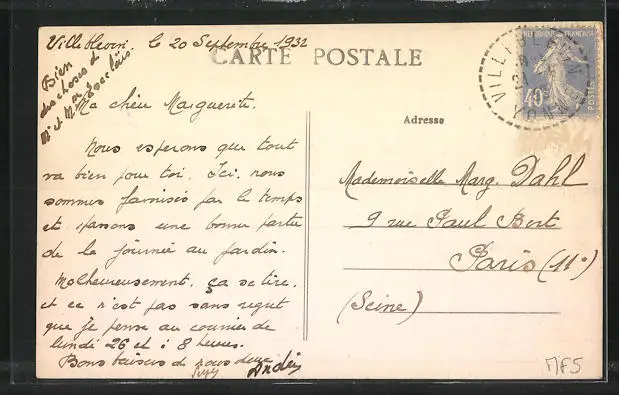 Villeblevin, le 20 Septembre 1932
Bien
des choses à
Mr et Mme
CARTE POSTALE
Ma chère Marguerite,
Nous espérons que tout
va bien pour toi. Ici, nous
sommes favorisés par le temps
et passons une bonne partie
de la journée au jardin.
Malheureusement, ça se tire,
et ce n'est pas sans regret
que je pense au courrier de
lundi 26 et à 8 heures.
Bons baisers de nous deux
Suzy André
REPUBLIQUE FRANÇAISE
40c
POSTES
VILLEBLEVIN
YONNE
Adresse
Mademoiselle Marg. Dahl
9 rue Paul Bert
Paris (11e)
(Seine)
MFS